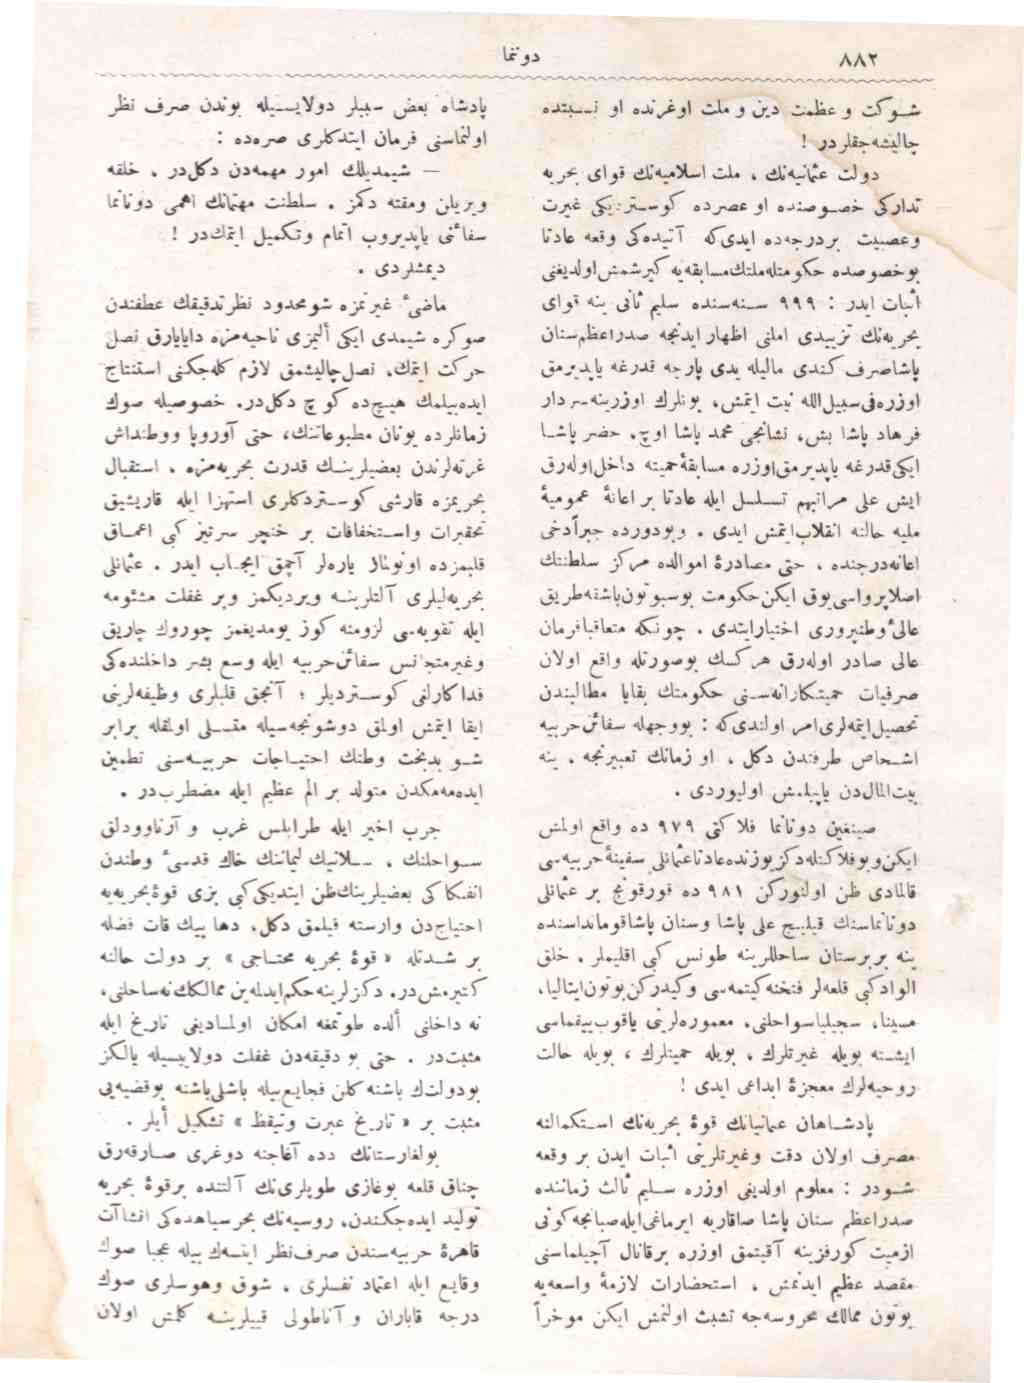 ٨٨٢
دوننما
شوكت و عظمت دين و ملت اوغرنده او نسبتده
چاليشه‌جقلردر !
دولت عثمانيه‌نك ، ملت اسلاميه‌نك قواى بحريه
تداركى خصوصنده او عصرده كوستردیكى غيرت
وعصبيت بردرجه‌ده ايدى‌كه آتيده‌كى وقعه عادتا
بوخصوصده حكومتله‌ملتك‌مسابقه‌يه كيرشمش‌اولديغنى
اثبات ايدر : ٩٩٩ سنه‌سنده سليم ثانى ينه قواى
بحريه‌نك تزييدى املنى اظهار ايدنجه صدراعظم‌سنان
پاشاصرف كندى ماليله يدى پارچه قدرغه ياپديرمق
اوزره‌فى‌سبيل‌الله نيت ايتمش، بونلرك اوزرينه‌سردار
فرهاد پاشا بش، نشانجى محمد پاشا اوچ، حضر پاشا
ايكى‌قدرغه ياپديرمق‌اوزره مسابقهٔ حميته داخل‌اوله‌رق
ايش على مراتبهم تسلسل ايله عادتا بر اعانهٔ عموميهٔ
مليه حالنه انقلاب‌ايتمش ايدى . وبودورده جبراًدخى
اعانه‌درجنده ، حتى مصادرهٔ اموالده مركز سلطنتك
اصلاپرواسى‌يوق ايكن‌حكومت بوسبوتون‌باشقه‌طريق
عالئ‌وطنپرورى اختيارايتدى . چونكه متعاقبافرمان
عالى صادر اوله‌رق هركسك بوصورتله واقع اولان
صرفيات حميتكارانه‌سنى حكومتك بقايا مطالبندن
تحصيل‌ايتمه‌لرى‌امر اولندى‌كه : بووجهله سفائن‌حربيه
اشخاص طرفندن دكل ، او زمانك تعبيرنجه ، ينه
بيت‌المال‌دن ياپيلمش اوليوردى .
صينغين دونانما فلاكتى ٩٧٩ ده واقع اولمش
ايكن‌وبوفلاكتله‌دكزيوزنده‌عادتاعثمانلى سفينهٔ حربيه‌سى
قالمادى ظن اولنوركن ٩٨١ ده قورقونج بر عثمانلى
دونانماسنك قيليج على پاشا وسنان پاشاقومانداسنده
ينه بربرستان ساحللرينه طونس كبى اقليملر . خلق
الوادكبى قلعه‌لر فتحنه‌كيتمه‌سى وكيدركن‌بوتون‌ايتاليا،
مسينا، سجيلياسواحلنى، معموره‌لرينى ياقوب‌ييقماسى
ايشته بويله غيرتلرك ، بويله حميتلرك ، بويله حالت
روحيه‌لرك معجزهٔ ابداعى ايدى !
پادشاهان عثمانيانك قوهٔ بحريه‌نك استكمالنه
مصرف اولان دقت وغيرتلرينى اثبات ايدن بر وقعه
شودر : معلوم اولديغى اوزره سليم ثالث زماننده
صدراعظم سنان پاشا صاقاريه ايرماغى‌ايله‌صبانجه‌كولنى
ازميت كورفزينه آقيتمق اوزره برقانال آچيلماسنى
مقصد عظيم ايدنمش ، استحضارات لازمهٔ واسعه‌يه
بوتون ممالك محروسه‌جه تشبث اولنمش ايكن موخراً
پادشاه بعض سببلر دولاييسيله بوندن صرف نظر
اولنماسنى فرمان ايتدكلرى صره‌ده :
— شيمديلك امور مهمه‌دن دكل‌در ، خلقه
ويريلن ومقته دكمز . سلطنت مهمتانك اهمى دونانما
سفائنى ياپديروب اتمام وتكميل ايتمك‌در !
ديمشلردى .
ماضئ غيرتمزه شومحدود نظرتدقيقك عطفندن
صوكره شيمدى ايكى ألیمزى ناحيه‌مزه داياياراق نصل
حركت ايتمك، نصل‌چاليشمق لازم كله‌جكنى استنتاج
ايده‌بيلمك هيچ‌ده كوچ دكل‌در. خصوصيله صوك
زمانلرده يونان مطبوعاتنك، حتى آوروپا ووطنداش
غزته‌لرندن بعضيلرينك قدرت بحريه‌مزه ، استقبال
بحريمزه قارشى كوستردكلرى استهزا ايله قاريشيق
تحقيرات واستخفافات بر خنچر سرتيز كبى اعماق
قلبمزده اونوتلماز ياره‌لر آچمق ايجاب ايدر . عثمانلى
بحريه‌ليلرى آلتلرينه ويرديكمز وبر غفلت مشئومه
ايله تقويه‌سى لزومنه كوز يومديغمز چوروك چاريق
وغيرمتجانس سفائن‌حربيه ايله وسع بشر داخلنده‌كى
فداكارلغى كوسترديلر ؛ آنجق قلبلرى وظيفه‌لرينى
ايفا ايتمش اولمق دوشونجه‌سيله متسلى اولمقله برابر
شو بدبخت وطنك احتياجات حربيه‌سنى تطمين
ايده‌مه‌مكدن متولد بر الم عظيم ايله مضطرب‌در .
حرب اخير ايله طرابلس غرب و آرناوودلق
سواحلنك ، سلانيك ليماننك خاك قدسئ وطندن
انفكاكى بعضيلرينك‌ظن ايتديكى‌كبى بزى قوهٔ بحريه‌يه
احتياج‌دن وارسته قيلمق دكل، دها بيك قات فضله
بر شدتله « قوهٔ بحريه محتاجى » بر دولت حالنه
كتيرمش‌در. دكزلرينه حكم‌ايدلمه‌ين ممالكك نه‌ساحلنى،
نه داخلنى ألده طوتمغه امكان اولماديغى تاريخ ايله
مثبت‌در . حتى بو دقيقه‌دن غفلت دولاييسيله يالكز
بودولت‌ك باشنه كلن فجايع‌بيله باشلى‌باشنه بوقضيه‌يى
مثبت بر « تاريخ عبرت وتيقظ » تشكيل أيلر .
بولغارستانك دده آغاجنه دوغرى صارقه‌رق
چناق قلعه بوغازى طوپلرى‌نك آلتنده برقوهٔ بحريه
توليد ايده‌جكندن، روسيه‌نك بحرسياهده‌كى انشاآت
قاهرهٔ حربيه‌سندن صرف‌نظر ايتسه‌ك بيله عجبا صوك
وقايع ايله اعتماد نفسلرى ، شوق وهوسلرى صوك
درجه قاباران و آناطولى قييلرينه كلمش اولان